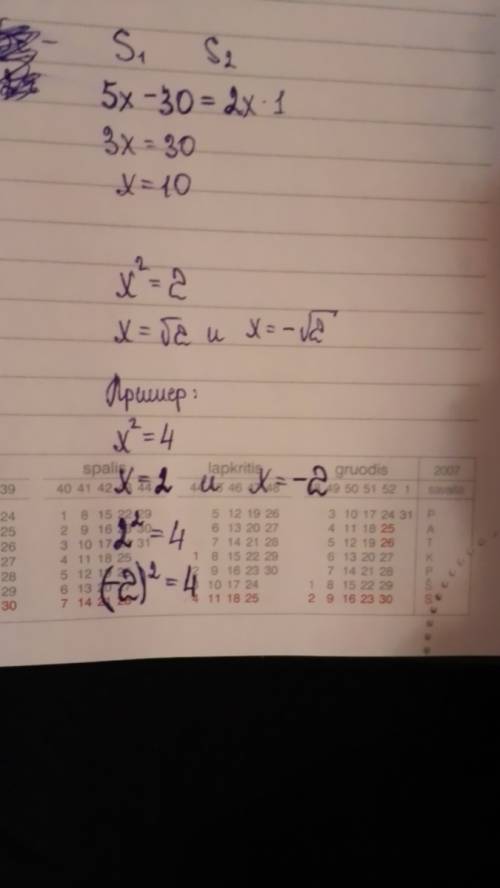 S₁ S₂
5x - 30 = 2x · 1
3x = 30
x = 10
x² = 2
x = √2 и x = -√2
Пример:
x² = 4
spalis lapkritis gruodis 2007
39 40 41 42 44 46 48 49 50 51 52 1 savaitė
x = 2 и x = -2
24 1 8 15 22 29 5 12 19 26 3 10 17 24 31 P
25 2 9 16 30 6 13 20 27 4 11 18 25 A
2² = 4
26 3 10 17 31 7 14 21 28 5 12 19 26 T
27 4 11 18 25 1 8 15 22 29 6 13 20 27 K
28 5 12 9 16 23 30 7 14 21 28 P
(-2)² = 4
29 6 13 10 17 24 1 8 15 22 29 Š
30 7 14 4 11 18 25 2 9 16 23 30 S